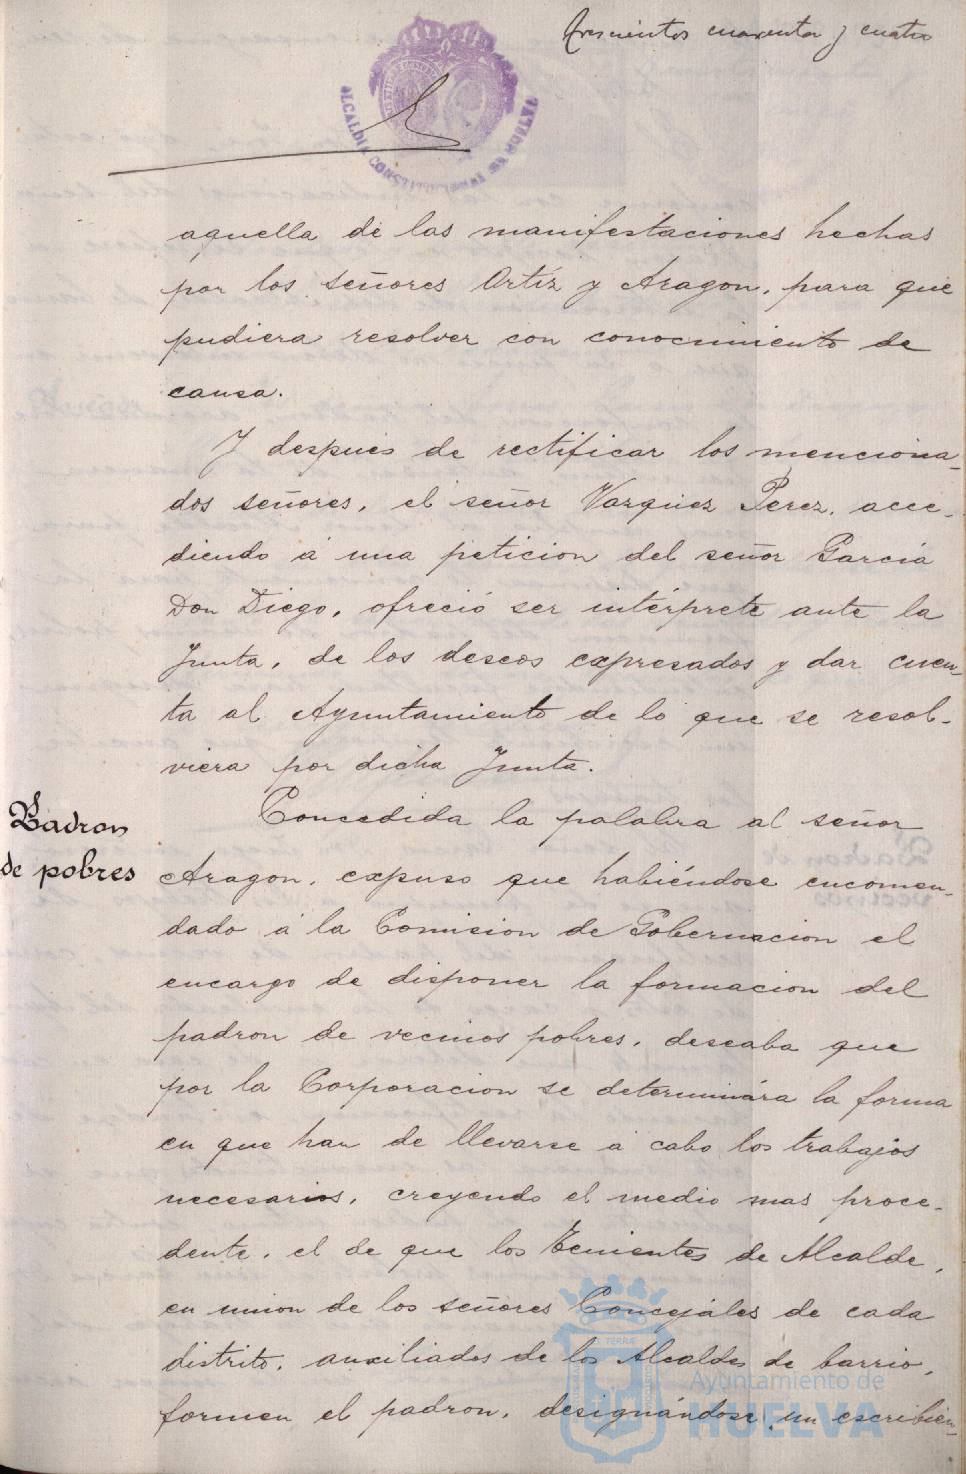 Trescientos cuarenta y cuatro
ALCALDIA CONSTITUCIONAL DE HUELVA
aquella de las manifestaciones hechas
por los señores Ortíz y Aragon, para que
pudiera resolver con conocimiento de
causa.
Y despues de rectificar los menciona-
dos señores, el señor Vazquez Perez, acce-
diendo á una peticion del señor García
Don Diego, ofreció ser intérprete ante la
Junta, de los deseos expresados y dar cuen-
ta al Ayuntamiento de lo que se resol-
viera por dicha Junta.
Padron
de pobres
Concedida la palabra al señor
Aragon, expuso que habiéndose encomen-
dado á la Comision de Gobernacion el
encargo de disponer la formacion del
padron de vecinos pobres, deseaba que
por la Corporacion se determinára la forma
en que han de llevarse á cabo los trabajos
necesarios, creyendo el medio mas proce-
dente, el de que los Tenientes de Alcalde,
en union de los señores Concejales de cada
distrito, auxiliados de los Alcaldes de barrio,
formen el padron, designándose un escribien-
Ayuntamiento de
HUELVA